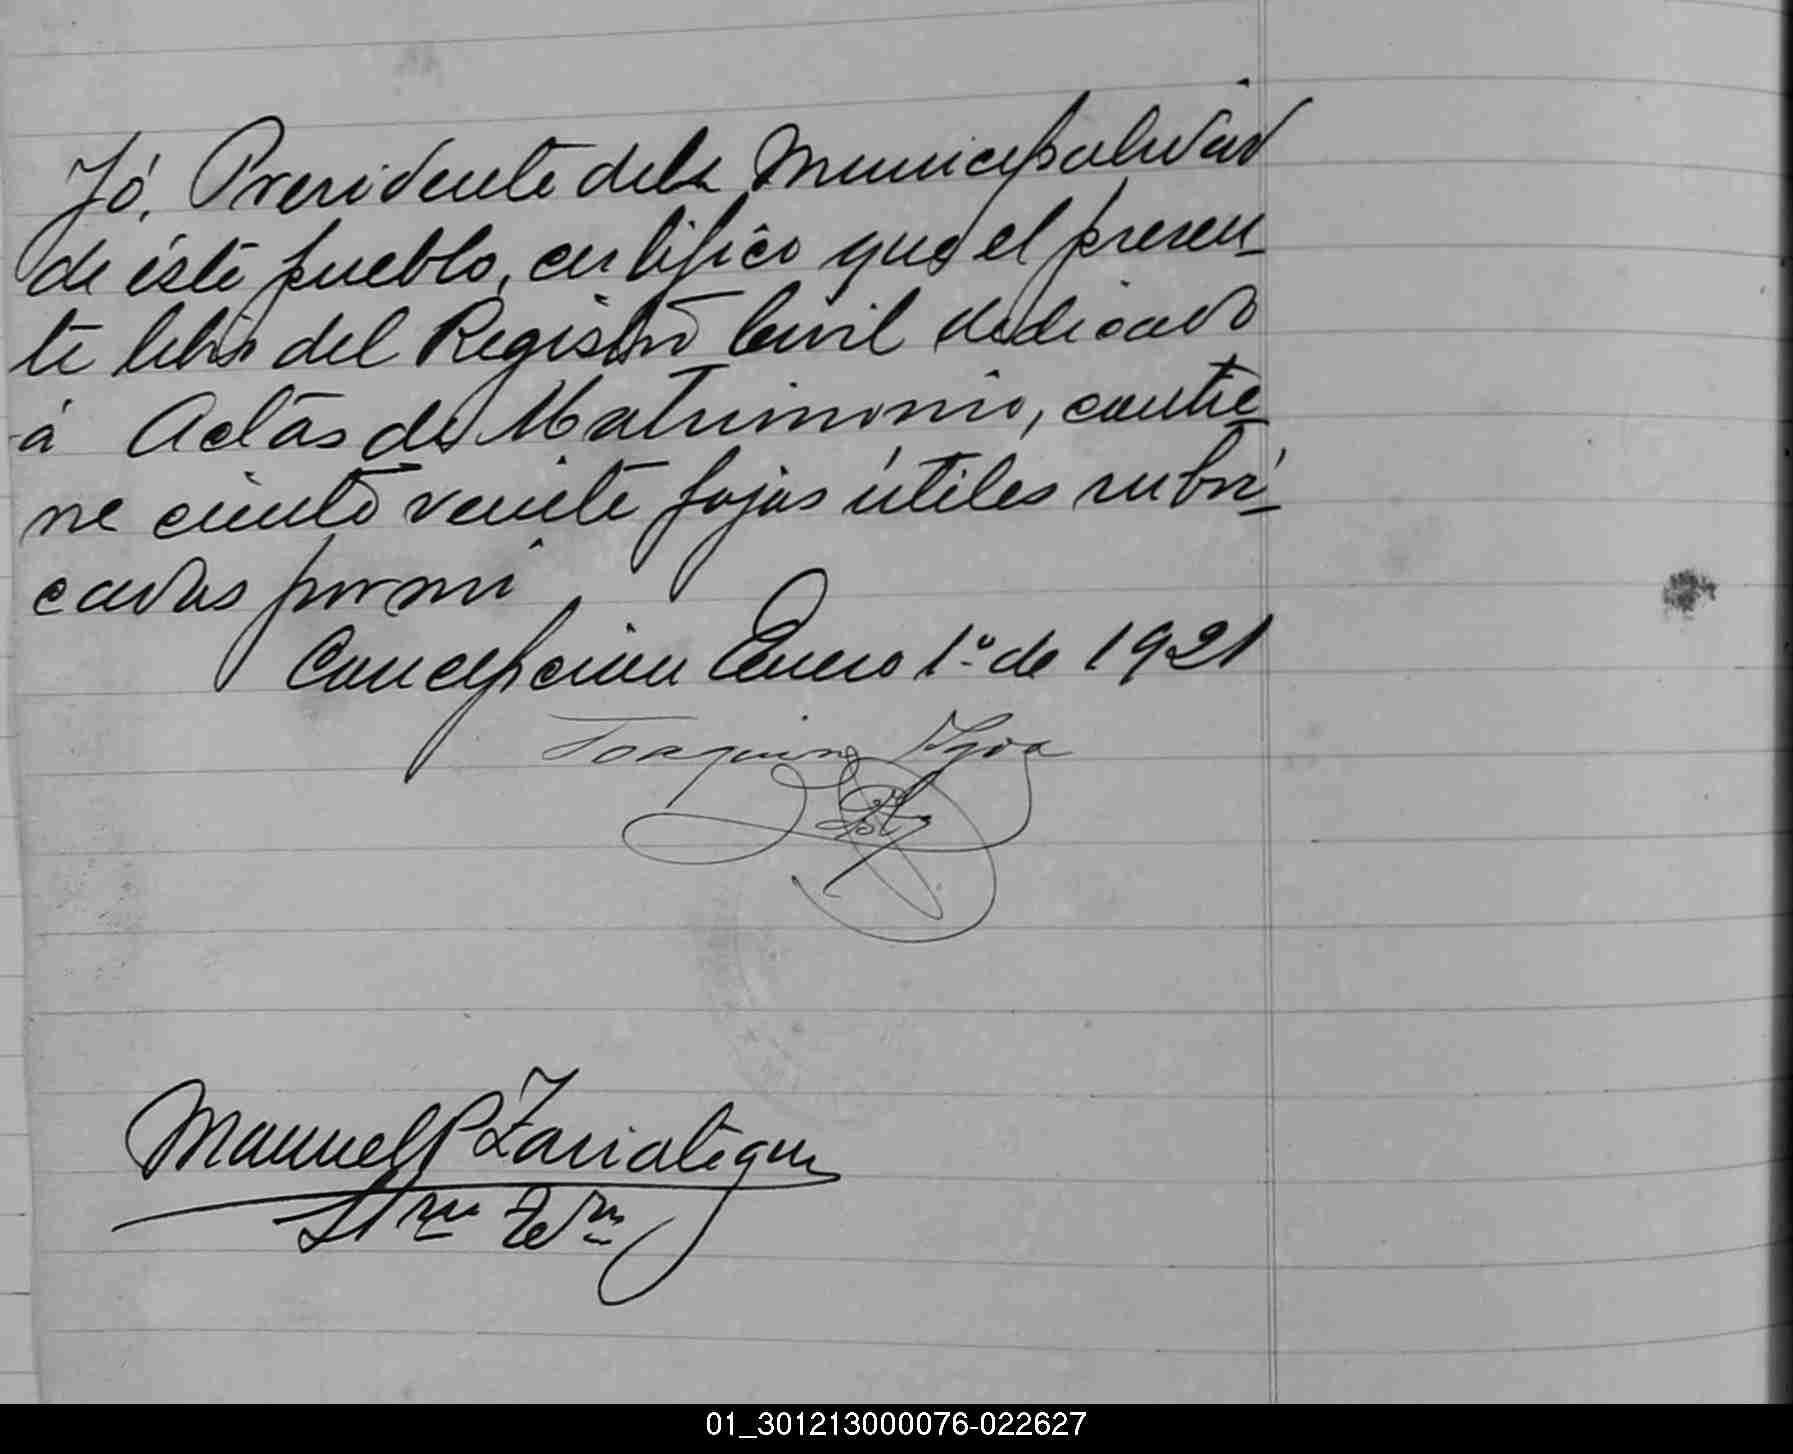 Yó, Presidente dela Municipalidad
de éste pueblo, certifico que el presen-
te libro del Registro Civil dedicado
á Actas de Matrimonio, contie-
ne ciento veinte fojas útiles rubri-
cadas por mi
Concepcion Enero 1º de 1921
Joaquin
Manuel P Zariategui
01_301213000076-022627